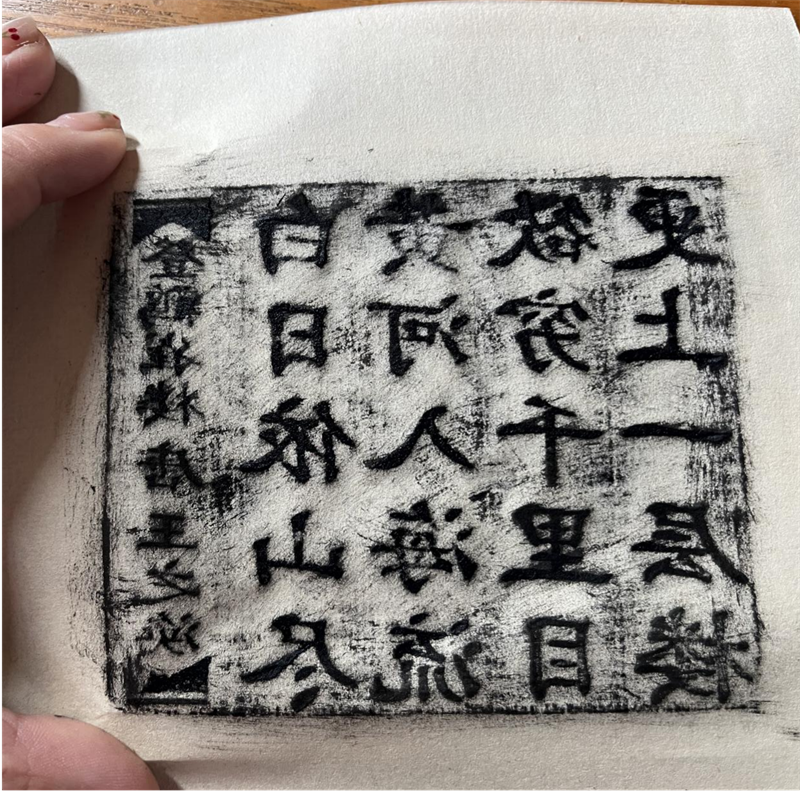 登鹳雀楼唐王之涣
白日依山尽
黄河入海流
欲穷千里目
更上一层楼